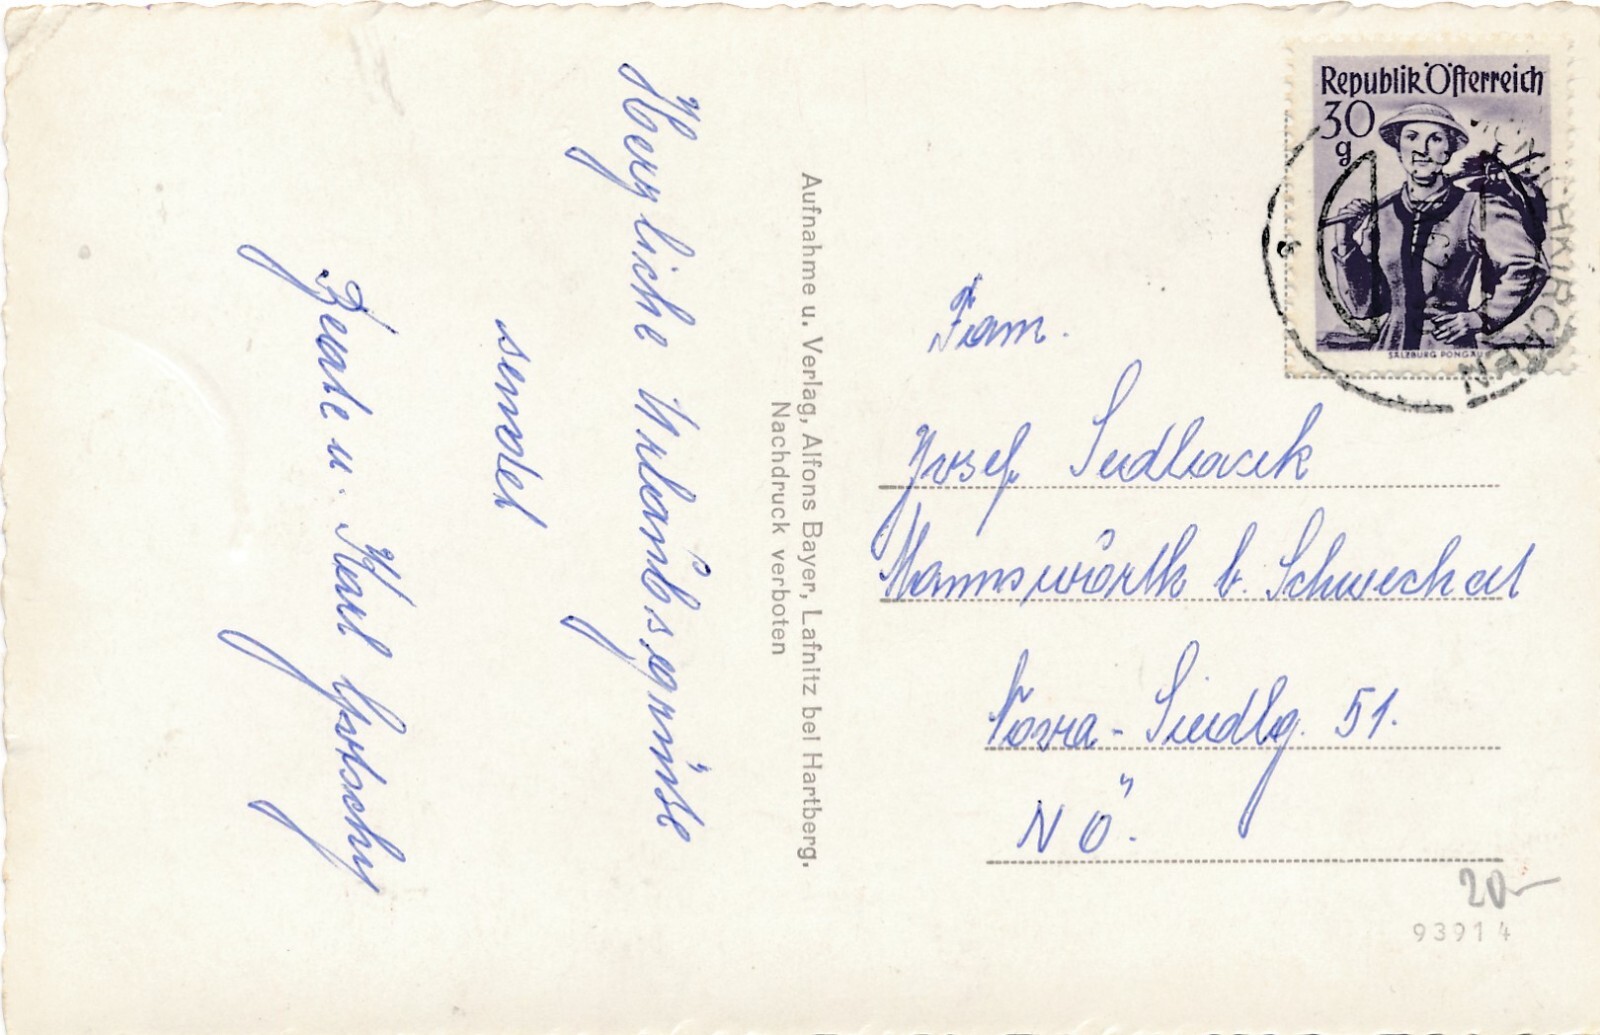 Herzliche Urlaubsgrüße
sendet
Beate u. Karl
Aufnahme u. Verlag, Alfons Bayer, Lafnitz bei Hartberg.
Nachdruck verboten
Republik Österreich
30
g
SALZBURG PONGAU
MÖNICHKIRCHEN
Fam.
Josef Sedlacek
Mannswörth b. Schwechat
Siedlg. 51.
NÖ.
20.-
93914